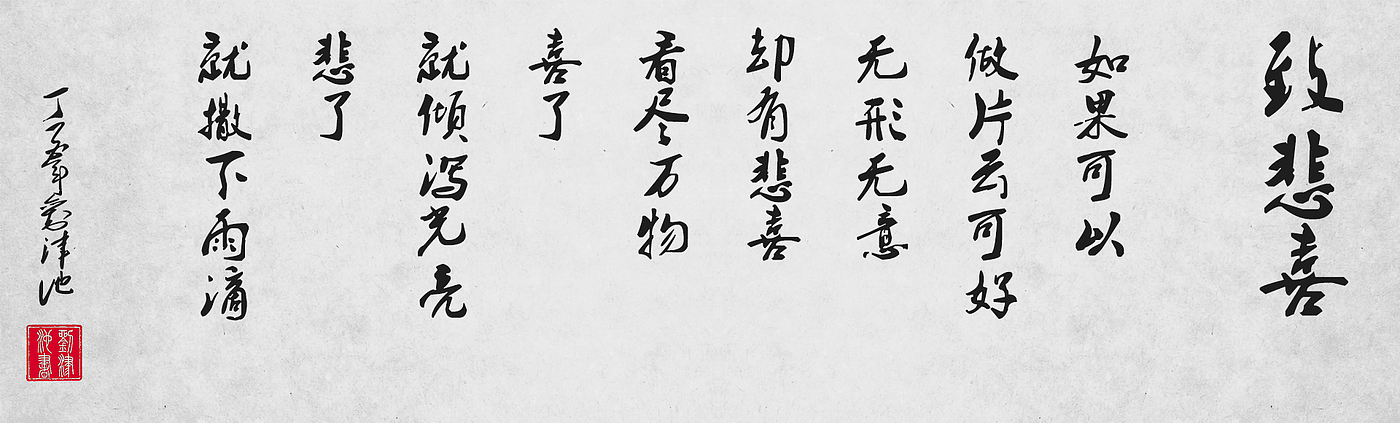 致悲喜
如果可以
做片云可好
无形无意
却有悲喜
看尽万物
喜了
就倾泻光亮
悲了
就撒下雨滴
丁酉年 刘津池
劉津池書